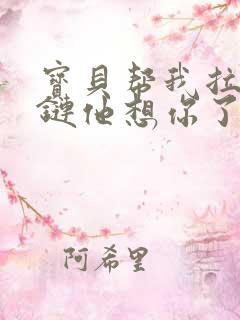 寳貝帮我拉
鏈他想你了
阿希里